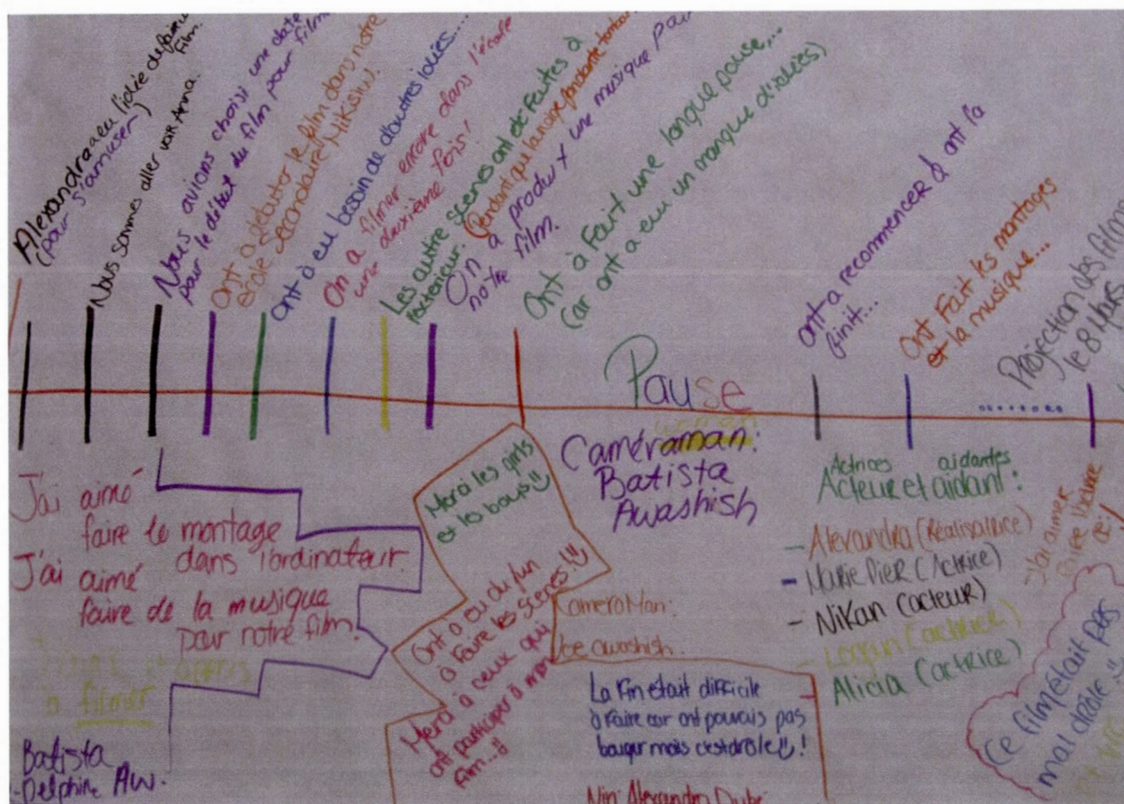 Alexandra a eu l'idée de faire un film.
(pour s'amuser)
Nous sommes aller voir Anna.
Nous avions choisi une date
pour le début du film pour filmer
Ont à débuter le film dans notre
école secondaire Nikisiw.
Ont à eu besoin de d'autres louiés...
On a filmer encore dans l'école
une deuxième fois!
Les autre scènes ont été feutes à
l'extérieur. (Pendant que la neige fondante tombait)
On a produit une musique pour
notre film.
Ont à Fait une longue pause,...
(car ont a eu un manque d'idées)
ont a recommencer à ont la
finit...
Ont Fait les montages
et la musique...
Projection des films
le 8 Mars
Pause
J'ai aimé
faire le montage
dans l'ordinateur.
J'ai aimé
faire de la musique
pour notre film.
à filmer
Batista
-Delphine Aw.
Merci les girls
et les boys
Ont a eu du fun
à faire les scènes!
Merci à ceux qui
ont participer à mon
film...
Caméraman:
Batista
Awashish
CameraMan:
be awashish.
La fin était difficile
à faire car ont pouvais pas
bouger mais c'est drôle !
Nin: Alexandra Dubé
Actrices aidantes
Acteur et aidant:
- Alexandra (Réalisatrice)
- Marie Pier (Actrice)
- Nikan (acteur)
- Logan (actrice)
Alicia (actrice)
J'ai aimer
faire l'actrice
Ce film était pas
mal drôle